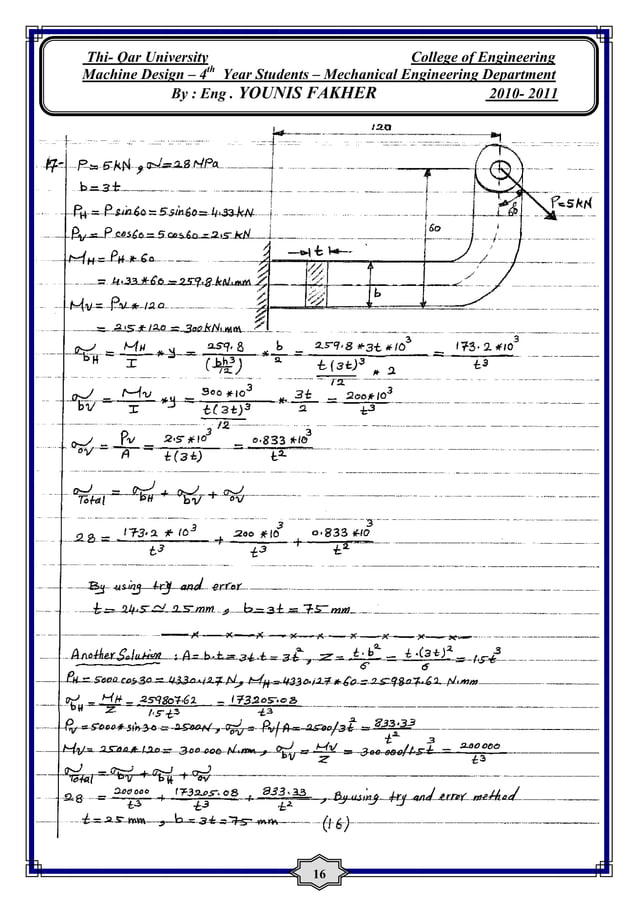 Thi- Qar University College of Engineering
Machine Design – 4th Year Students – Mechanical Engineering Department
By : Eng . YOUNIS FAKHER 2010- 2011
120
17- P=5kN, σ=28MPa
b=3t
P_H = P sin60 = 5 sin60 = 4.33 kN
P_V = P cos60 = 5 cos60 = 2.5 kN
M_H = P_H * 60
= 4.33*60 = 259.8 kN.mm
M_V = P_V * 120
= 2.5*120 = 300 kN.mm
P=5kN
60
60
t
b
σ_bH = M_H/I * y = 259.8/(bh³/12) * b/2 = 259.8*3t*10³/(t(3t)³/12 * 2) = 173.2*10³/t³
σ_bV = M_V/I * y = 300*10³/(t(3t)³/12) * 3t/2 = 200*10³/t³
σ_oV = P_V/A = 2.5*10³/t(3t) = 0.833*10³/t²
σ_Total = σ_bH + σ_bV + σ_oV
28 = 173.2*10³/t³ + 200*10³/t³ + 0.833*10³/t²
By using try and error
t = 24.5 ≃ 25 mm, b=3t = 75 mm
Another Solution : A=b.t=3t.t=3t², Z = t.b²/6 = t.(3t)²/6 = 1.5t³
P_H = 5000 cos30 = 4330.127 N, M_H = 4330.127*60 = 259807.62 N.mm
σ_bH = M_H/Z = 259807.62/1.5t³ = 173205.08/t³
P_V = 5000*sin30 = 2500N, σ_oV = P_V/A = 2500/3t² = 833.33/t²
M_V = 2500*120 = 300 000 N.mm, σ_bV = M_V/Z = 300 000/1.5t³ = 200000/t³
σ_Total = σ_bV + σ_bH + σ_oV
28 = 200000/t³ + 173205.08/t³ + 833.33/t², By using try and error method
t = 25 mm, b=3t=75 mm (16)
16